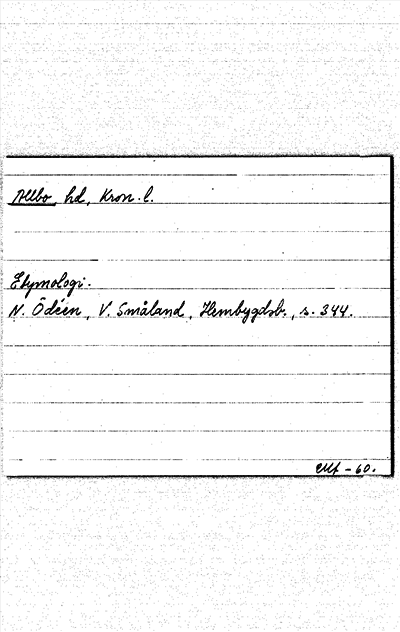 Allbo, hd, Kron. l.
Etymologi.
N. Ödéen, V. Småland, Hembygdsb., s. 344.
- 60.